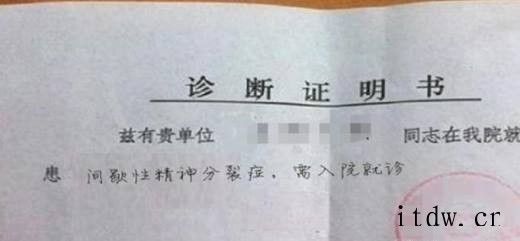 诊断证明书
兹有贵单位 同志在我院就
患 间歇性精神分裂症，需入院就诊
itdw.cr